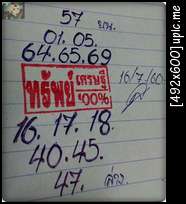 57 บน.
01. 05.
64. 65. 69
ทรัพย์ เศรษฐี 100%
16/7/60
16. 17. 18.
40. 45.
47. ล่าง.
[492x600] upic.me